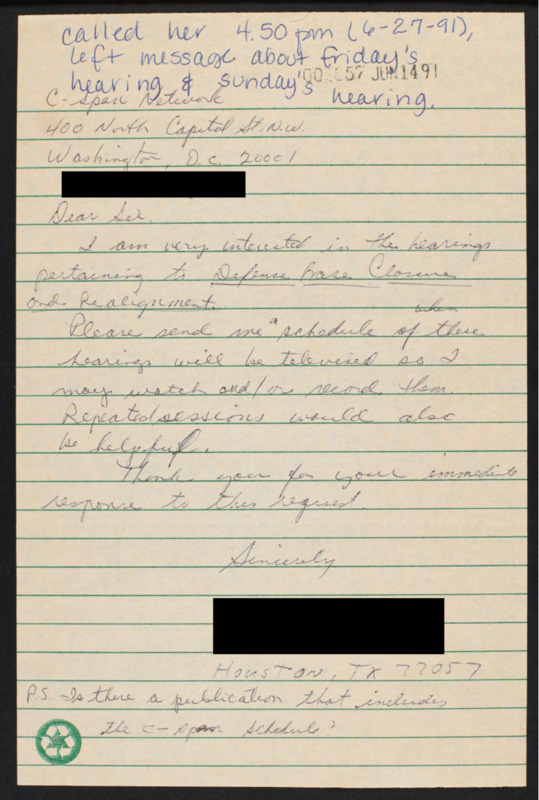 called her 4.50 pm (6-27-91),
left message about friday's
hearing & sunday's hearing.
57 JUN14 91
C-Span Network
400 North Capitol St. N.W.
Washington, D.C. 20001
Dear Sir,
I am very interested in the hearings
pertaining to Defense Base Closure
and Realignment.
Please send me a schedule of when these
hearings will be televised so I
may watch and/or record them.
Repeated sessions would also
be helpful.
Thank you for your immediate
response to this request.
Sincerely
HOUSTON, TX 77057
P.S. Is there a publication that includes
the C-Span Schedule?